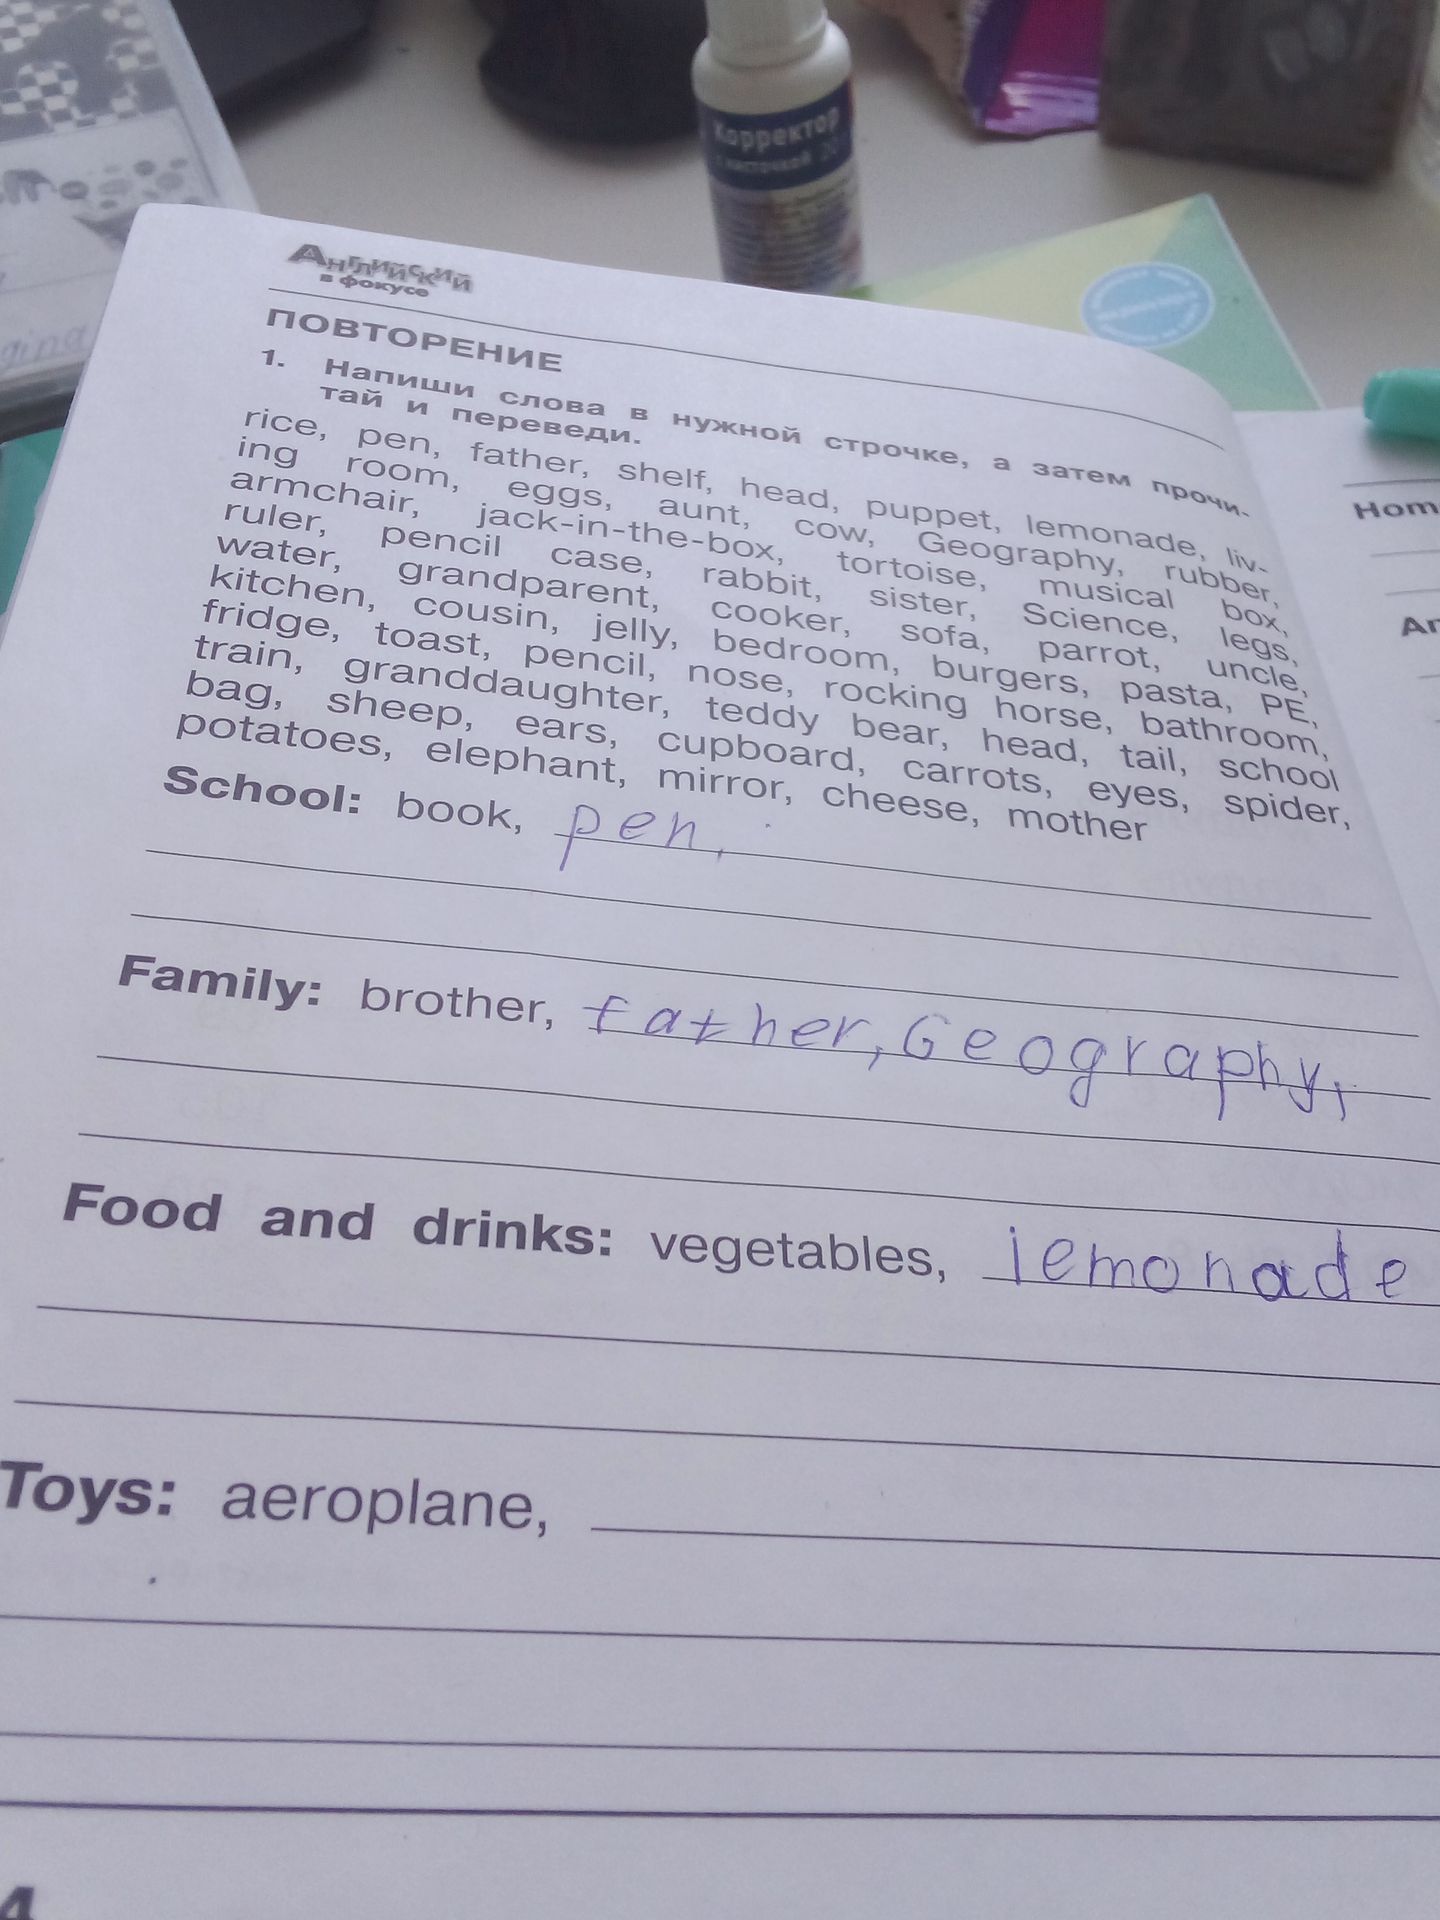 Корректор
с кисточкой 20
Английский
в фокусе
ПОВТОРЕНИЕ
1. Напиши слова в нужной строчке, а затем прочи-
тай и переведи.
rice, pen, father, shelf, head, puppet, lemonade, liv-
ing room, eggs, aunt, cow, Geography, rubber,
armchair, jack-in-the-box, tortoise, musical box,
ruler, pencil case, rabbit, sister, Science, legs,
water, grandparent, cooker, sofa, parrot, uncle,
kitchen, cousin, jelly, bedroom, burgers, pasta, PE,
fridge, toast, pencil, nose, rocking horse, bathroom,
train, granddaughter, teddy bear, head, tail, school
bag, sheep, ears, cupboard, carrots, eyes, spider,
potatoes, elephant, mirror, cheese, mother
School: book, pen,
Family: brother, father, Geography,
Food and drinks: vegetables, lemonade
Toys: aeroplane,
4
Hom